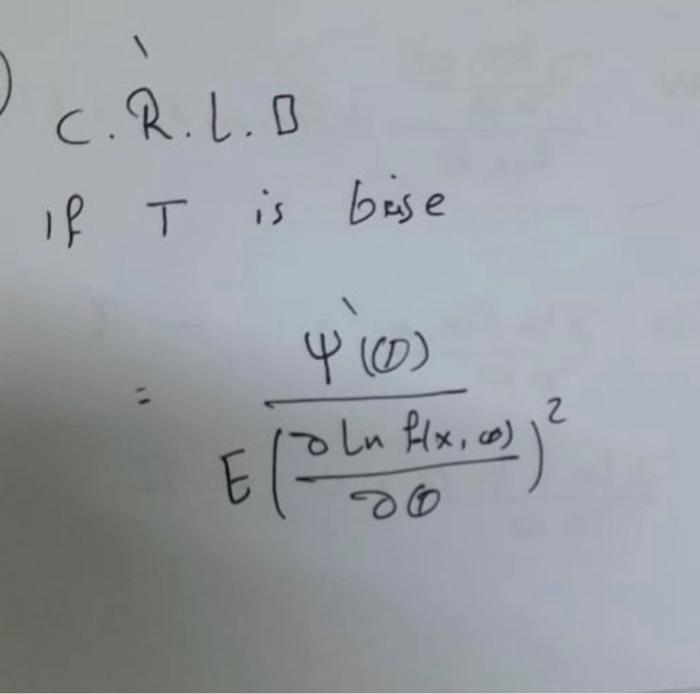 ) C.R.L.B
If T is bise
= ψ'(θ)
E(∂ ln f(x, θ) / ∂θ)²